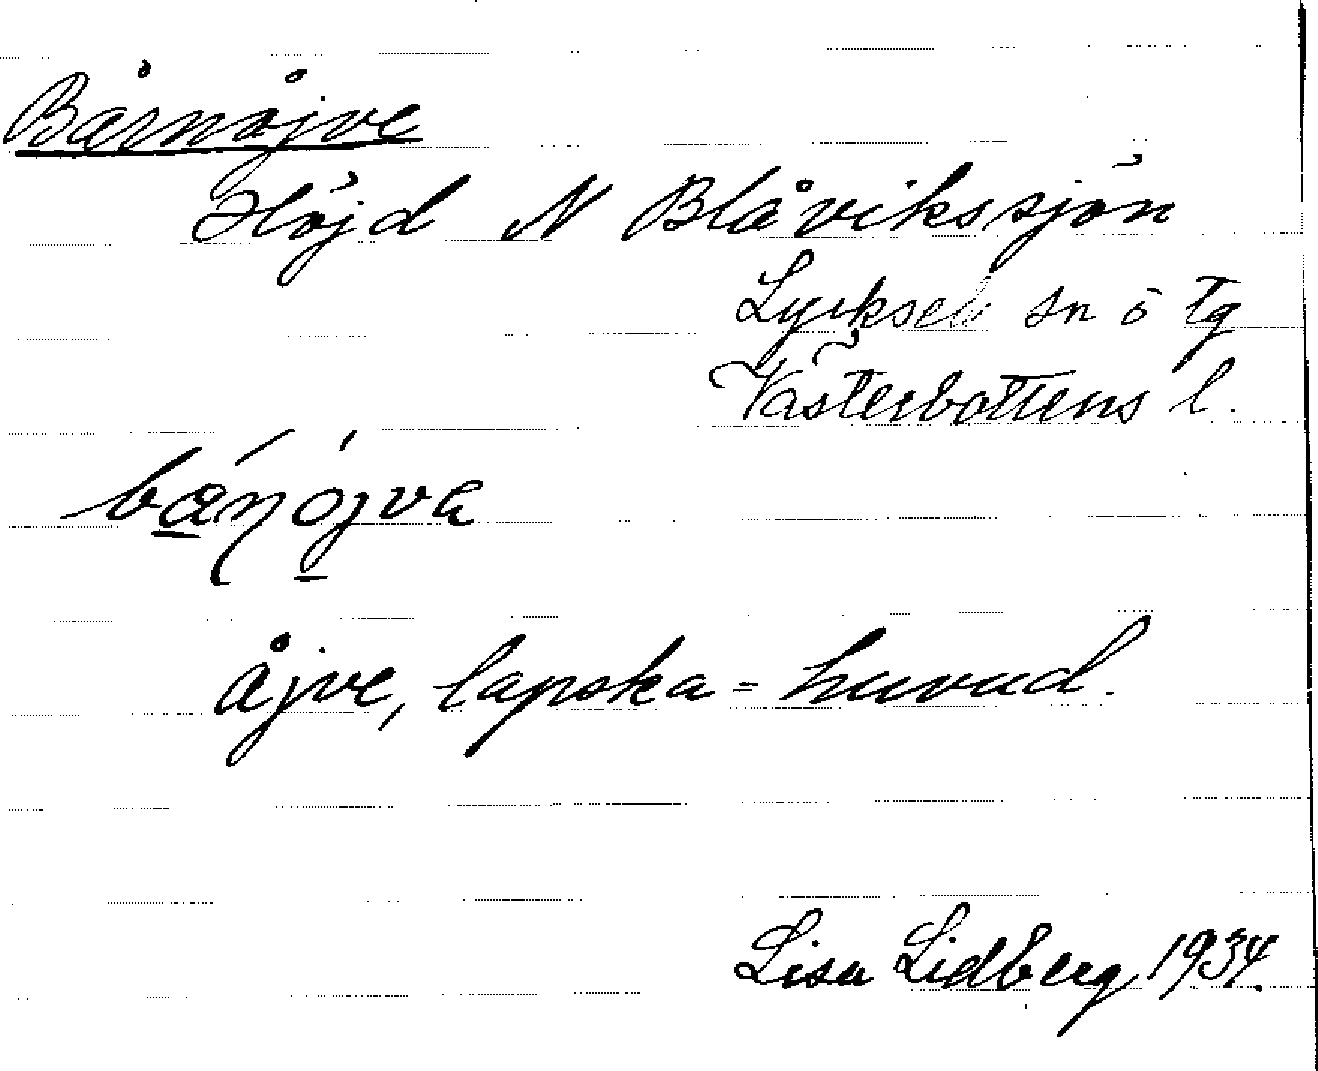 Bårnåjve
Höjd N Blåvikssjön
Lycksele sn ö tg
Västerbottens l.
bæ̠ɳó̠jva
åjve, lapska = huvud.
Lisa Lidberg 1934.